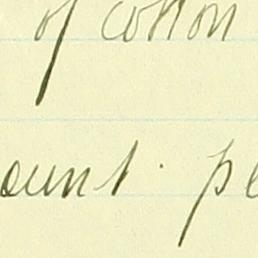 of cotton
ount. pe